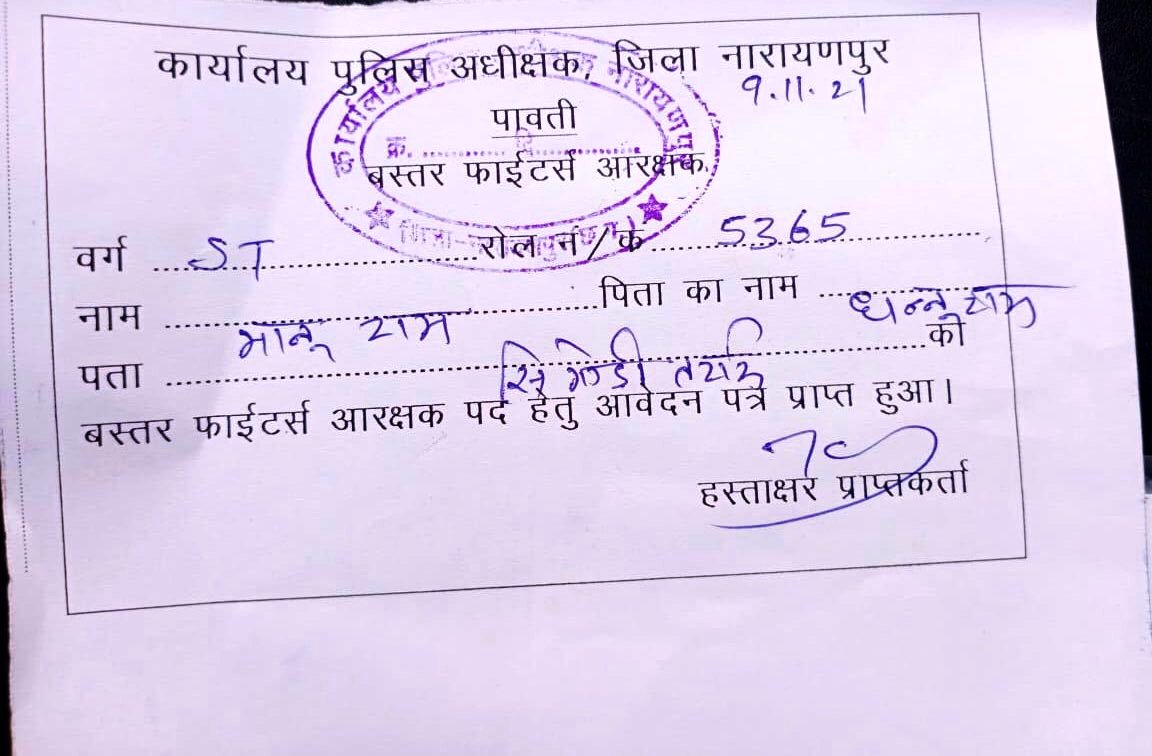 कार्यालय पुलिस अधीक्षक, जिला नारायणपुर
9.11.21
पावती
बस्तर फाईटर्स आरक्षक
वर्ग ST रोल नं/क 5365
नाम मानू राम पिता का नाम धन्नू राम
पता को
बस्तर फाईटर्स आरक्षक पद हेतु आवेदन पत्र प्राप्त हुआ।
हस्ताक्षर प्राप्तकर्ता